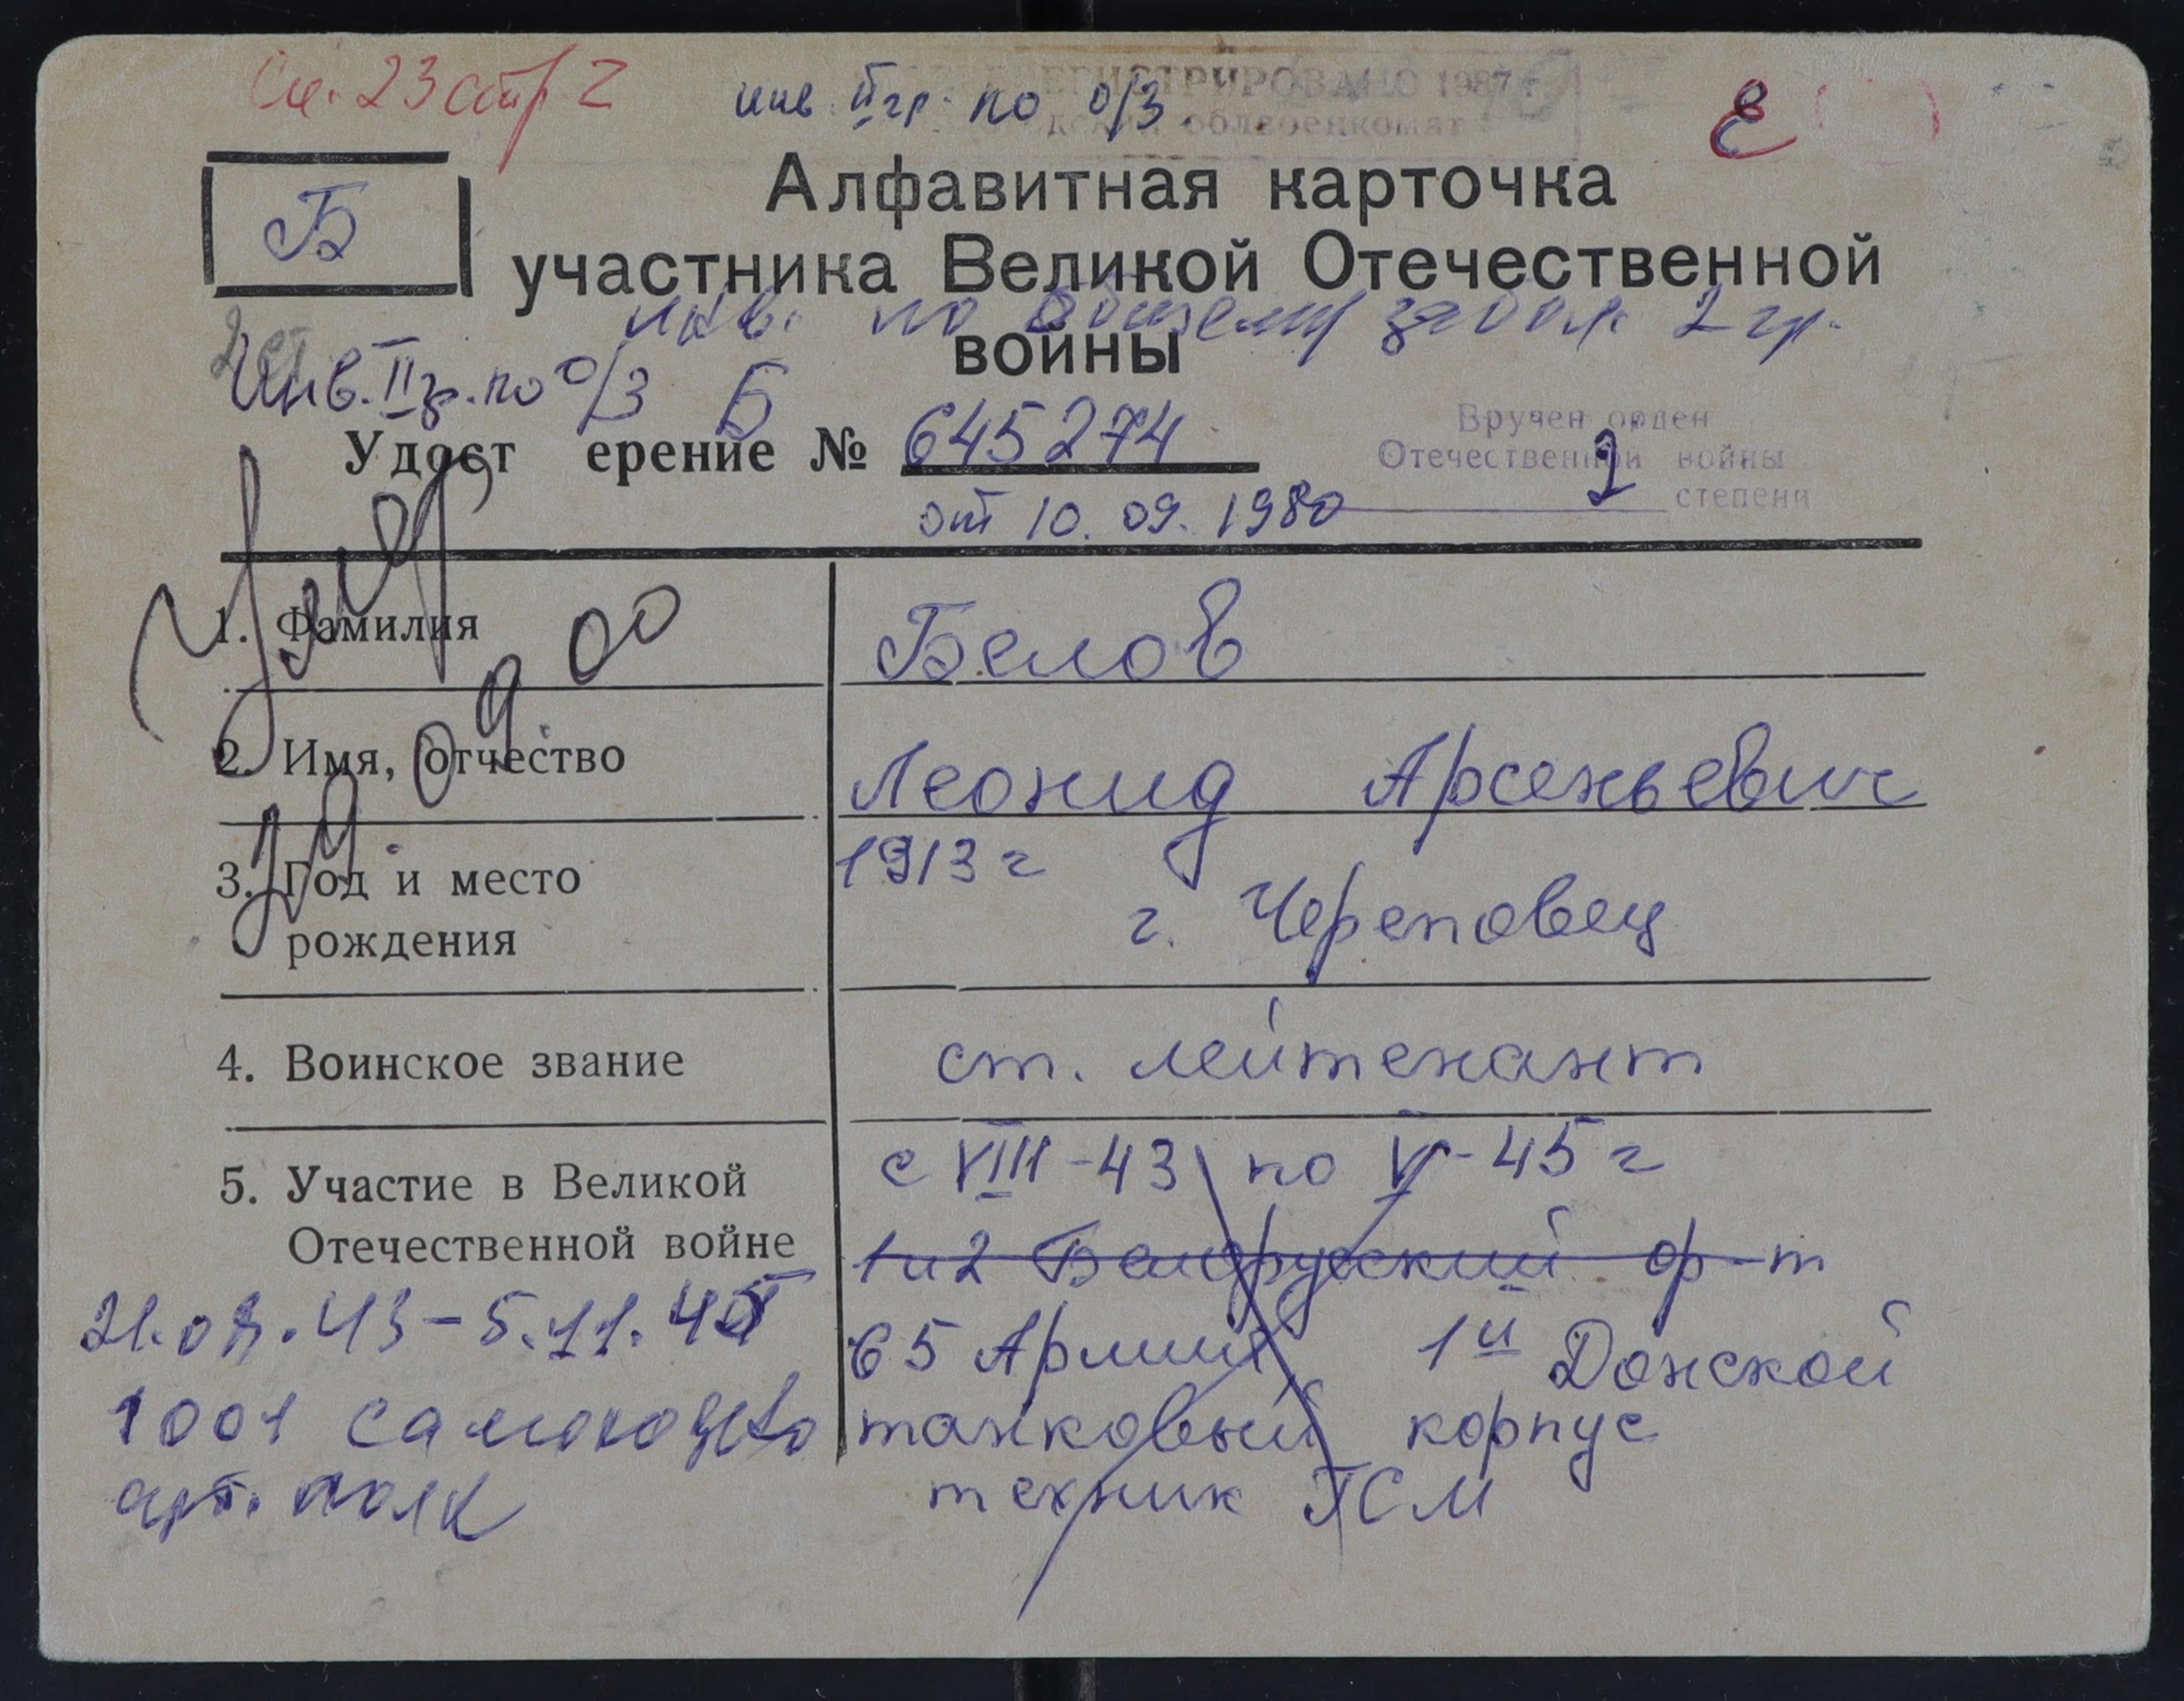 Сп. 23 стр 2
инв. II гр. по о/з
РЕГИСТРИРОВАНО 1987 г
облвоенкомат
Б
Алфавитная карточка
участника Великой Отечественной
войны
инв. по общему забол. 2 гр.
Инв. II гр. по о/з Б
Удост ерение № 645274
от 10.09.1980
Вручен орден
Отечественной войны
2 степени
Умер
09.00
19.
1. Фамилия Белов
2. Имя, отчество Леонид Арсеньевич
3. Год и место рождения 1913 г
г. Череповец
4. Воинское звание ст. лейтенант
5. Участие в Великой Отечественной войне с VIII-43 по V-45 г
1 и 2 Белорусский ф-т
65 Армии 1й Донской
танковый корпус
техник ГСМ
21.08.43-5.11.45
1001 самоходно
арт. полк